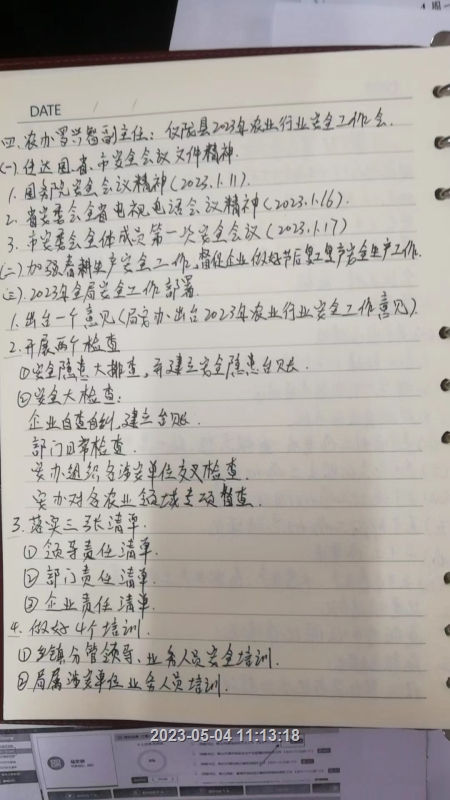 DATE / /
四.农办罗兴智副主任:仪陇县2023年农业行业安全工作会.
(一).传达国、省、市安全会议文件精神.
1.国务院安全会议精神(2023.1.11).
2.省安委会全省电视电话会议精神(2023.1.16).
3.市安委会全体成员第一次安全会议(2023.1.17)
(二)加强春耕生产安全工作,督促企业做好节后复工复产安全生产工作.
(三).2023年全局安全工作部署.
1.出台一个意见(局安办出台2023年农业行业安全工作意见).
2.开展两个检查
①安全隐患大排查,并建立安全隐患台账.
②安全大检查:
企业自查自纠,建立台账.
部门日常检查.
安办组织各涉安单位交叉检查.
安办对各农业领域专项督查.
3.落实三张清单.
①领导责任清单.
②部门责任清单.
③企业责任清单.
4.做好4个培训.
①乡镇分管领导、业务人员安全培训.
②局属涉安单位业务人员培训.
2023-05-04 11:13:18